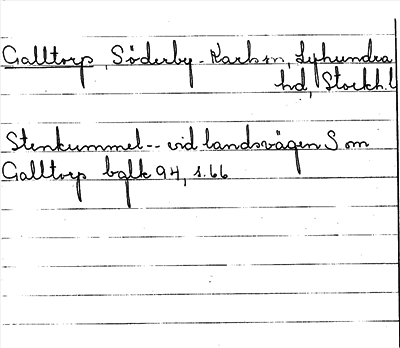 Galltorp, Söderby-Karls sn, Lyhundra
hd, Stockh. l
Stenkummel -- vid landsvägen S om
Galltorp bglk 94, s. 66